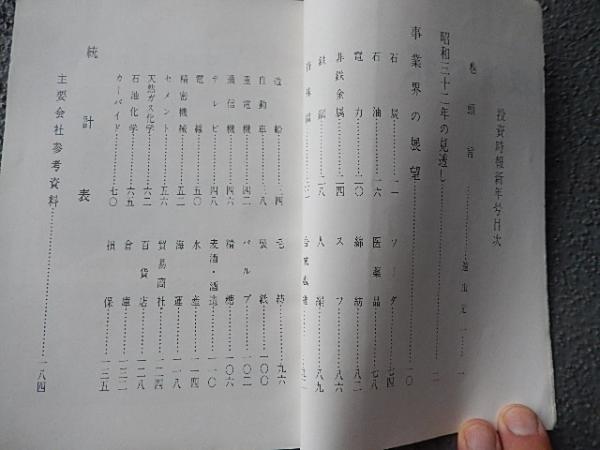 投資時報新年号目次
巻頭言
一
昭和三十二年の見透し
二
事業界の展望
一〇
石炭 一一
石油 一六
電力 二〇
非鉄金属 二四
鉄鋼 二八
造船 三四
自動車 三八
重電機 四二
通信機 四六
テレビ 四八
電線 五〇
精密機械 五二
セメント 五六
天然ガス化学 六二
石油化学 六五
カーバイド 七〇
ソーダ 七四
医薬品 七八
綿紡 八二
スフ 八六
人絹 八九
毛紡 九六
製鉄 一〇〇
パルプ 一〇二
精糖 一〇六
麦酒・酒造 一一〇
水産 一一四
海運 一一八
貿易商社 一二四
百貨店 一二八
倉庫 一三二
損保 一三五
統計表
主要会社参考資料 一八四